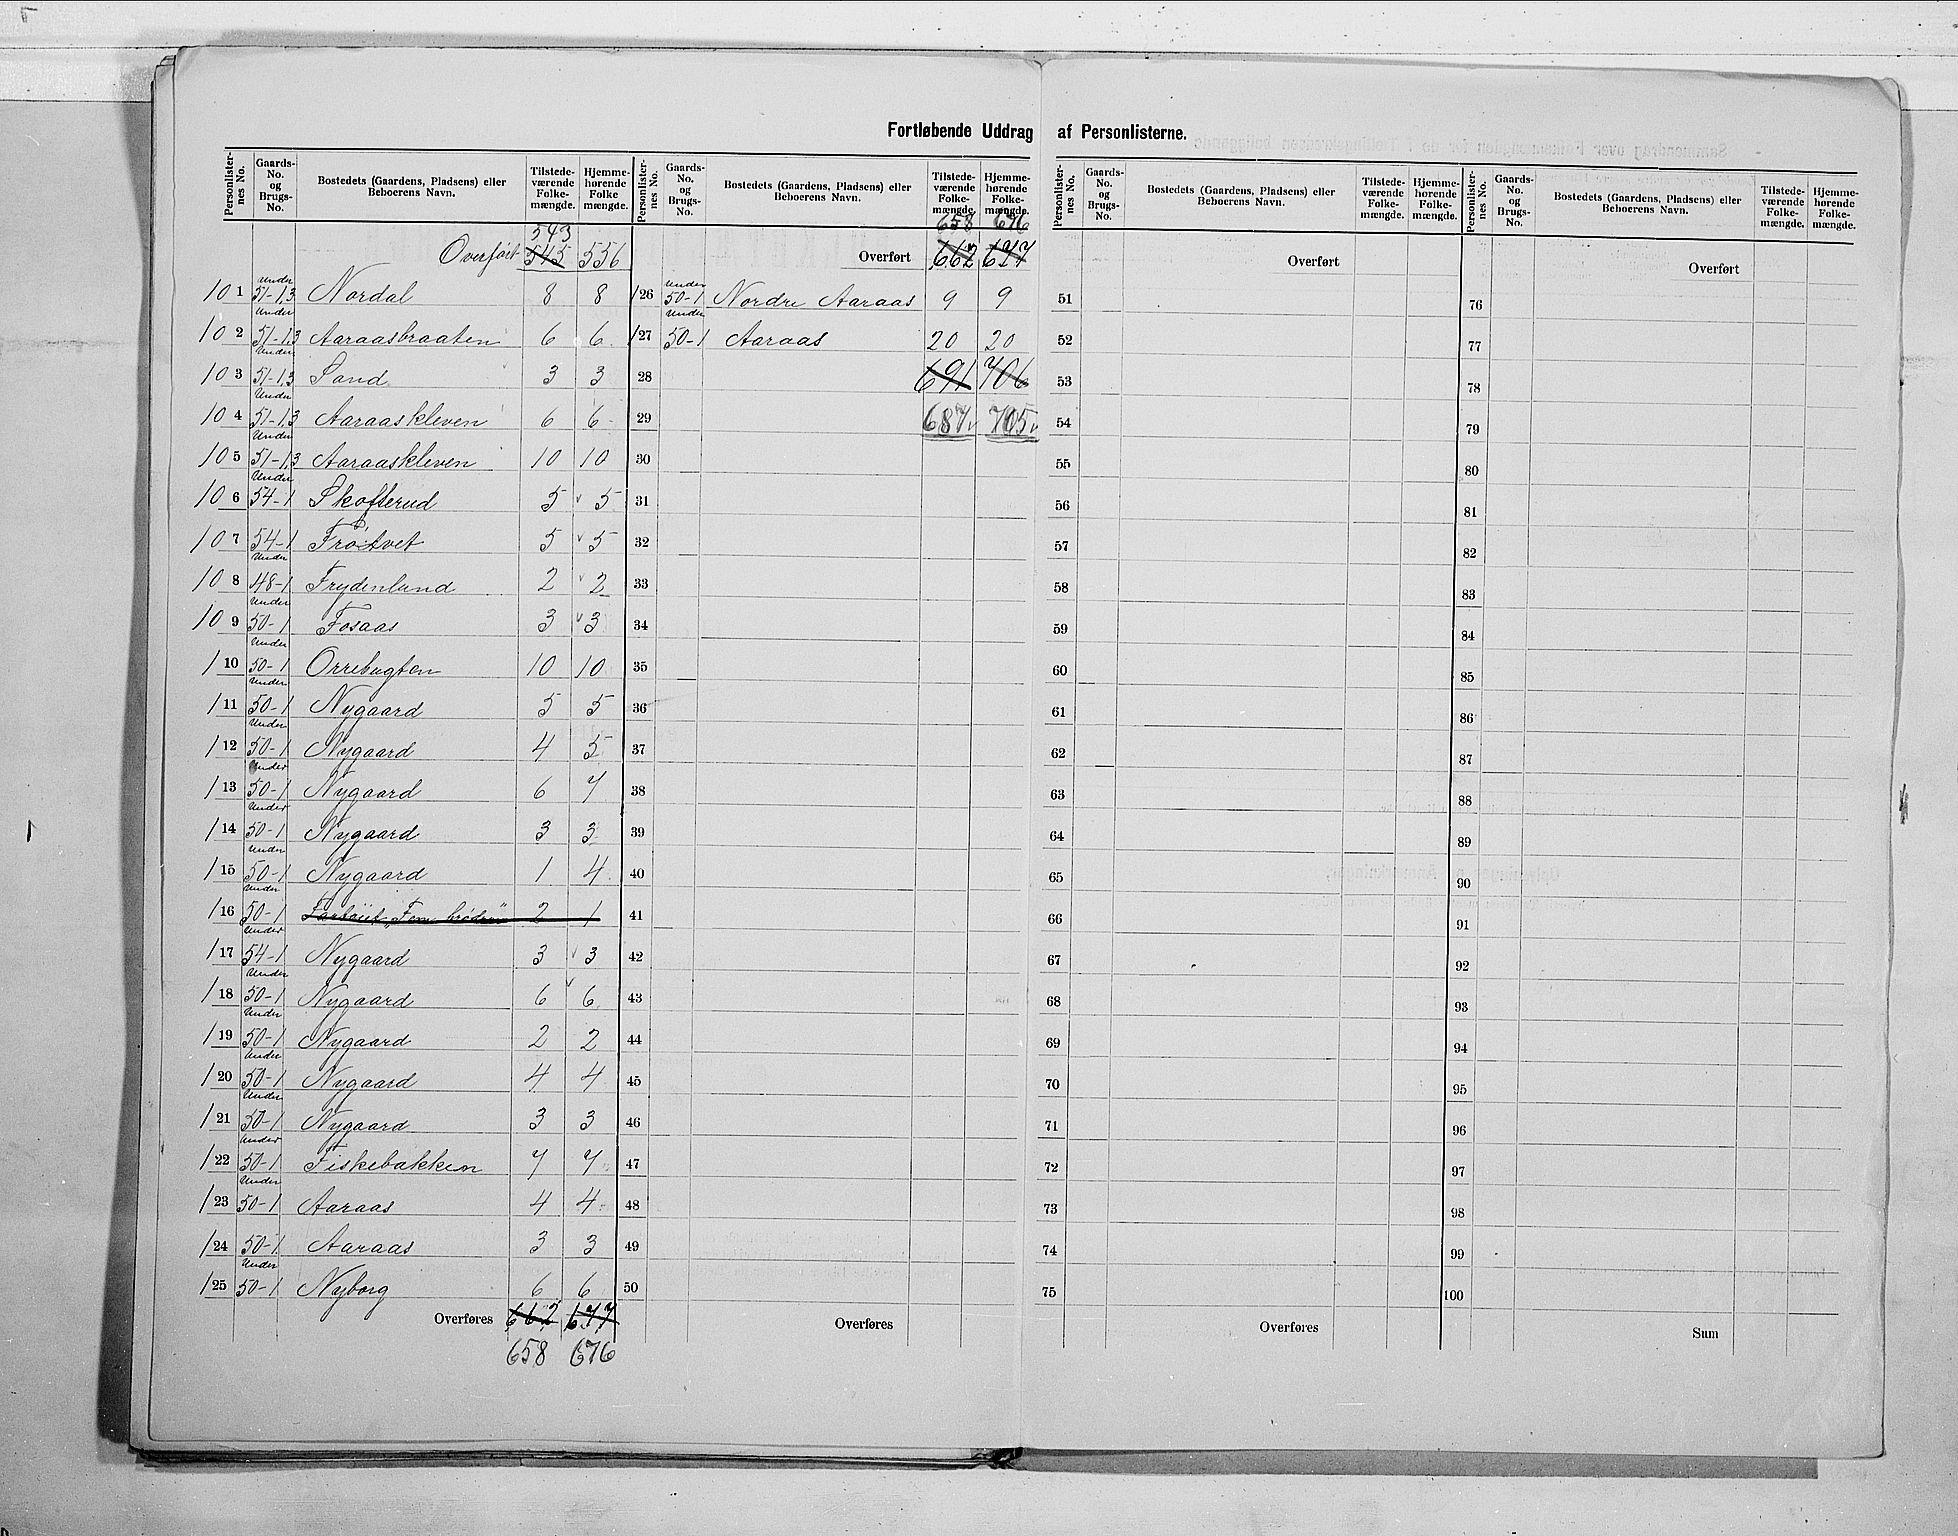 Fortløbende Uddrag af Personlisterne.
Personlister-nes No. | Gaards-No. og Brugs-No. | Bostedets (Gaardens, Pladsens) eller Beboerens Navn. | Tilstede-værende Folke-mængde. | Hjemme-hørende Folke mængde.
543
Overført 545 556
101 Under 51-1,3 Nordal 8 8
102 Under 51-1,3 Aaraasbraaten 6 6
103 Under 51-1,3 Sand 3 3
104 Under 51-1,3 Aaraaskleven 6 6
105 Under 51-1,3 Aaraaskleven 10 10
106 Under 54-1 Skofterud 5 5
107 54-1 Frøtvet 5 5
108 Under 48-1 Frydenlund 2 2
109 Under 50-1 Fosaas 3 3
110 Under 50-1 Orrebugten 10 10
111 Under 50-1 Nygaard 5 5
112 Under 50-1 Nygaard 4 5
113 Under 50-1 Nygaard 6 7
114 Under 50-1 Nygaard 3 3
115 Under 50-1 Nygaard 1 4
116 Under 50-1 Fartøiet „Fem brødre" 2 1
117 Under 54-1 Nygaard 3 3
118 Under 50-1 Nygaard 6 6
119 Under 50-1 Nygaard 2 2
120 Under 50-1 Nygaard 4 4
121 Under 50-1 Nygaard 3 3
122 Under 50-1 Fiskebakken 7 7
123 Under 50-1 Aaraas 4 4
124 50-1 Aaraas 3 3
125 Under 50-1 Nyborg 6 6
Overføres 662 677
658 676
Personlister-nes No. | Gaards-No. og Brugs-No. | Bostedets (Gaardens, Pladsens) eller Beboerens Navn. | Tilstede-værende Folke-mængde. | Hjemme-hørende Folke-mængde.
658 676
Overført 662 677
126 Under 50-1 Nordre Aaraas 9 9
127 Under 50-1 Aaraas 20 20
28 691 706
29 687 705
30
31
32
33
34
35
36
37
38
39
40
41
42
43
44
45
46
47
48
49
50
Overføres
Personlister-nes No. | Gaards-No. og Brugs-No. | Bostedets (Gaardens, Pladsens) eller Beboerens Navn. | Tilstede-værende Folke-mængde. | Hjemme-hørende Folke-mængde.
Overført
51
52
53
54
55
56
57
58
59
60
61
62
63
64
65
66
67
68
69
70
71
72
73
74
75
Overføres
Personlister-nes No. | Gaards-No. og Brugs-No. | Bostedets (Gaardens, Pladsens) eller Beboerens Navn. | Tilstede-værende Folke-mængde. | Hjemme-hørende Folke-mængde.
Overført
76
77
78
79
80
81
82
83
84
85
86
87
88
89
90
91
92
93
94
95
96
97
98
99
100
Sum